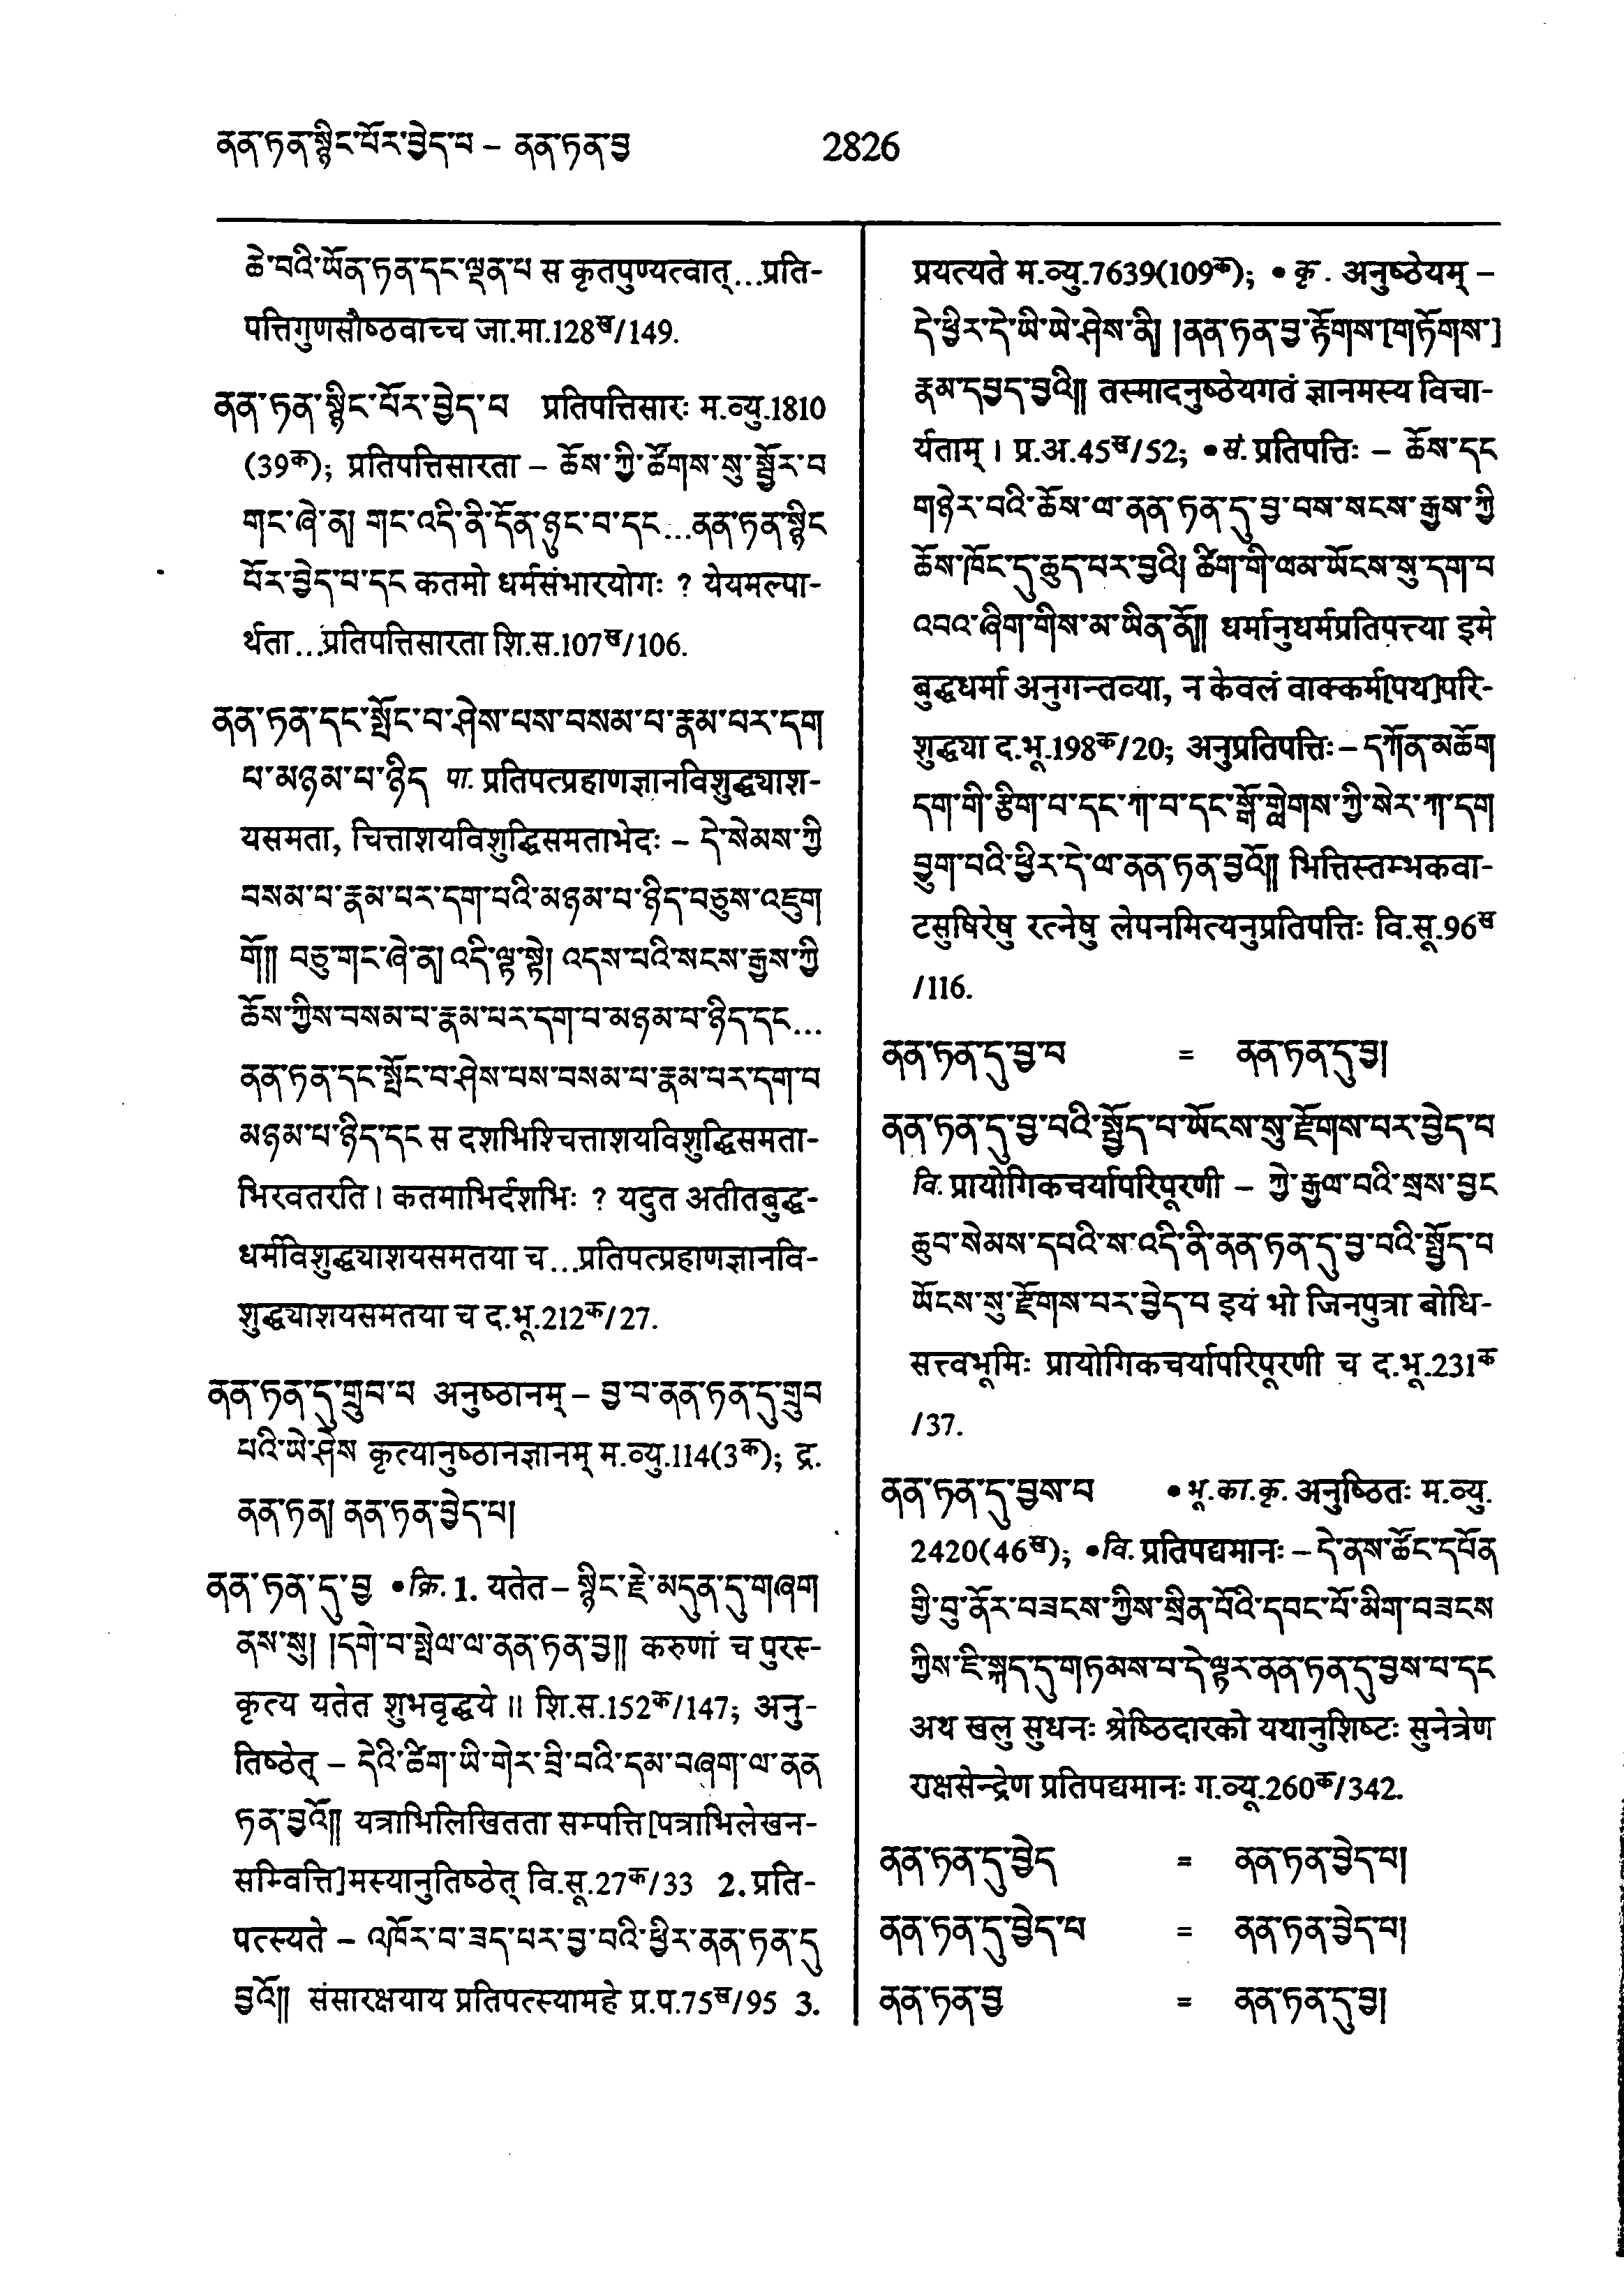 ནན་ཏན་སྙིང་པོར་བྱེད་པ – ནན་ཏན་བྱ 2826
ཆེ་བའི་ཡོན་ཏན་དང་ལྡན་པ स कृतपुण्यत्वात्...प्रति-
पत्तिगुणसौष्ठवाच्च जा.मा.128ख/149.
ནན་ཏན་སྙིང་པོར་བྱེད་པ प्रतिपत्तिसारः म.व्यु.1810
(39क); प्रतिपत्तिसारता – ཆོས་ཀྱི་ཚོགས་སུ་སྦྱོར་བ
གང་ཞེ་ན། གང་འདི་ནི་དོན་ཉུང་བ་དང...ནན་ཏན་སྙིང
པོར་བྱེད་པ་དང कतमो धर्मसंभारयोगः ? येयमल्पा-
र्थता...प्रतिपत्तिसारता शि.स.107ख/106.
ནན་ཏན་དང་སྤོང་བ་ཤེས་པས་བསམ་པ་རྣམ་པར་དག
པ་མཉམ་པ་ཉིད पा. प्रतिपत्प्रहाणज्ञानविशुद्ध्याश-
यसमता, चित्ताशयविशुद्धिसमताभेदः – དེ་སེམས་ཀྱི
བསམ་པ་རྣམ་པར་དག་པའི་མཉམ་པ་ཉིད་བཅུས་འཇུག
གོ།། བཅུ་གང་ཞེ་ན། འདི་ལྟ་སྟེ། འདས་པའི་སངས་རྒྱས་ཀྱི
ཆོས་ཀྱིས་བསམ་པ་རྣམ་པར་དག་པ་མཉམ་པ་ཉིད་དང...
ནན་ཏན་དང་སྤོང་བ་ཤེས་པས་བསམ་པ་རྣམ་པར་དག་པ
མཉམ་པ་ཉིད་དང स दशभिश्चित्ताशयविशुद्धिसमता-
भिरवतरति। कतमाभिर्दशभिः ? यदुत अतीतबुद्ध-
धर्मविशुद्ध्याशयसमतया च...प्रतिपत्प्रहाणज्ञानवि-
शुद्ध्याशयसमतया च द.भू.212क/27.
ནན་ཏན་དུ་གྲུབ་པ अनुष्ठानम् – བྱ་བ་ནན་ཏན་དུ་གྲུབ
པའི་ཡེ་ཤེས कृत्यानुष्ठानज्ञानम् म.व्यु.114(3क); द्र.
ནན་ཏན། ནན་ཏན་བྱེད་པ།
ནན་ཏན་དུ་བྱ •क्रि. 1. यतेत – སྙིང་རྗེ་མདུན་དུ་གཞག
ནས་སུ། །དགེ་བ་སྤེལ་ལ་ནན་ཏན་བྱ།། करुणां च पुरस्-
कृत्य यतेत शुभवृद्धये॥ शि.स.152क/147; अनु-
तिष्ठेत् – དེའི་ཚིག་ཡི་གེར་བྲི་བའི་དམ་བཞག་ལ་ནན
ཏན་བྱའོ།། यत्राभिलिखितता सम्पत्ति[पत्राभिलेखन-
सम्वित्ति]मस्यानुतिष्ठेत् वि.सू.27क/33 2. प्रति-
पत्स्यते – འཁོར་བ་ཟད་པར་བྱ་བའི་ཕྱིར་ནན་ཏན་དུ
བྱའོ།། संसारक्षयाय प्रतिपत्स्यामहे प्र.प.75ख/95 3.
प्रयत्यते म.व्यु.7639(109क); • कृ. अनुष्ठेयम् –
དེ་ཕྱིར་དེ་ཡི་ཡེ་ཤེས་ནི། །ནན་ཏན་བྱ་རྟོགས་[གཏོགས་]
རྣམ་དབྱད་བྱའི།། तस्मादनुष्ठेयगतं ज्ञानमस्य विचा-
र्यताम्। प्र.अ.45ख/52; •सं. प्रतिपत्तिः – ཆོས་དང
གཉེར་བའི་ཆོས་ལ་ནན་ཏན་དུ་བྱ་བས་སངས་རྒྱས་ཀྱི
ཆོས་ཁོང་དུ་ཆུད་པར་བྱའི། ཚིག་གི་ལམ་ཡོངས་སུ་དག་པ
འབའ་ཞིག་གིས་མ་ཡིན་ནོ།། धर्मानुधर्मप्रतिपत्त्या इमे
बुद्धधर्मा अनुगन्तव्या, न केवलं वाक्कर्म[पथ]परि-
शुद्ध्या द.भू.198क/20; अनुप्रतिपत्तिः – དཀོན་མཆོག
དག་གི་རྩིག་པ་དང་ཀ་བ་དང་སྒོ་གླེགས་ཀྱི་སེར་ཀ་དག
བྱུག་པའི་ཕྱིར་དེ་ལ་ནན་ཏན་བྱའོ།། भित्तिस्तम्भकवा-
टसुषिरेषु रत्नेषु लेपनमित्यनुप्रतिपत्तिः वि.सू.96ख
/116.
ནན་ཏན་དུ་བྱ་བ = ནན་ཏན་དུ་བྱ།
ནན་ཏན་དུ་བྱ་བའི་སྤྱོད་པ་ཡོངས་སུ་རྫོགས་པར་བྱེད་པ
वि. प्रायोगिकचर्यापरिपूरणी – ཀྱེ་རྒྱལ་བའི་སྲས་བྱང
ཆུབ་སེམས་དཔའི་ས་འདི་ནི་ནན་ཏན་དུ་བྱ་བའི་སྤྱོད་པ
ཡོངས་སུ་རྫོགས་པར་བྱེད་པ इयं भो जिनपुत्रा बोधि-
सत्त्वभूमिः प्रायोगिकचर्यापरिपूरणी च द.भू.231क
/37.
ནན་ཏན་དུ་བྱས་པ •भू.का.कृ. अनुष्ठितः म.व्यु.
2420(46ख); •वि. प्रतिपद्यमानः – དེ་ནས་ཚོང་དཔོན
གྱི་བུ་ནོར་བཟངས་ཀྱིས་སྲིན་པོའི་དབང་པོ་མིག་བཟངས
ཀྱིས་ཇི་སྐད་དུ་གཏམས་པ་དེ་ལྟར་ནན་ཏན་དུ་བྱས་པ་དང
अथ खलु सुधनः श्रेष्ठिदारको यथानुशिष्टः सुनेत्रेण
राक्षसेन्द्रेण प्रतिपद्यमानः ग.व्यू.260क/342.
ནན་ཏན་དུ་བྱེད = ནན་ཏན་བྱེད་པ།
ནན་ཏན་དུ་བྱེད་པ = ནན་ཏན་བྱེད་པ།
ནན་ཏན་བྱ = ནན་ཏན་དུ་བྱ།